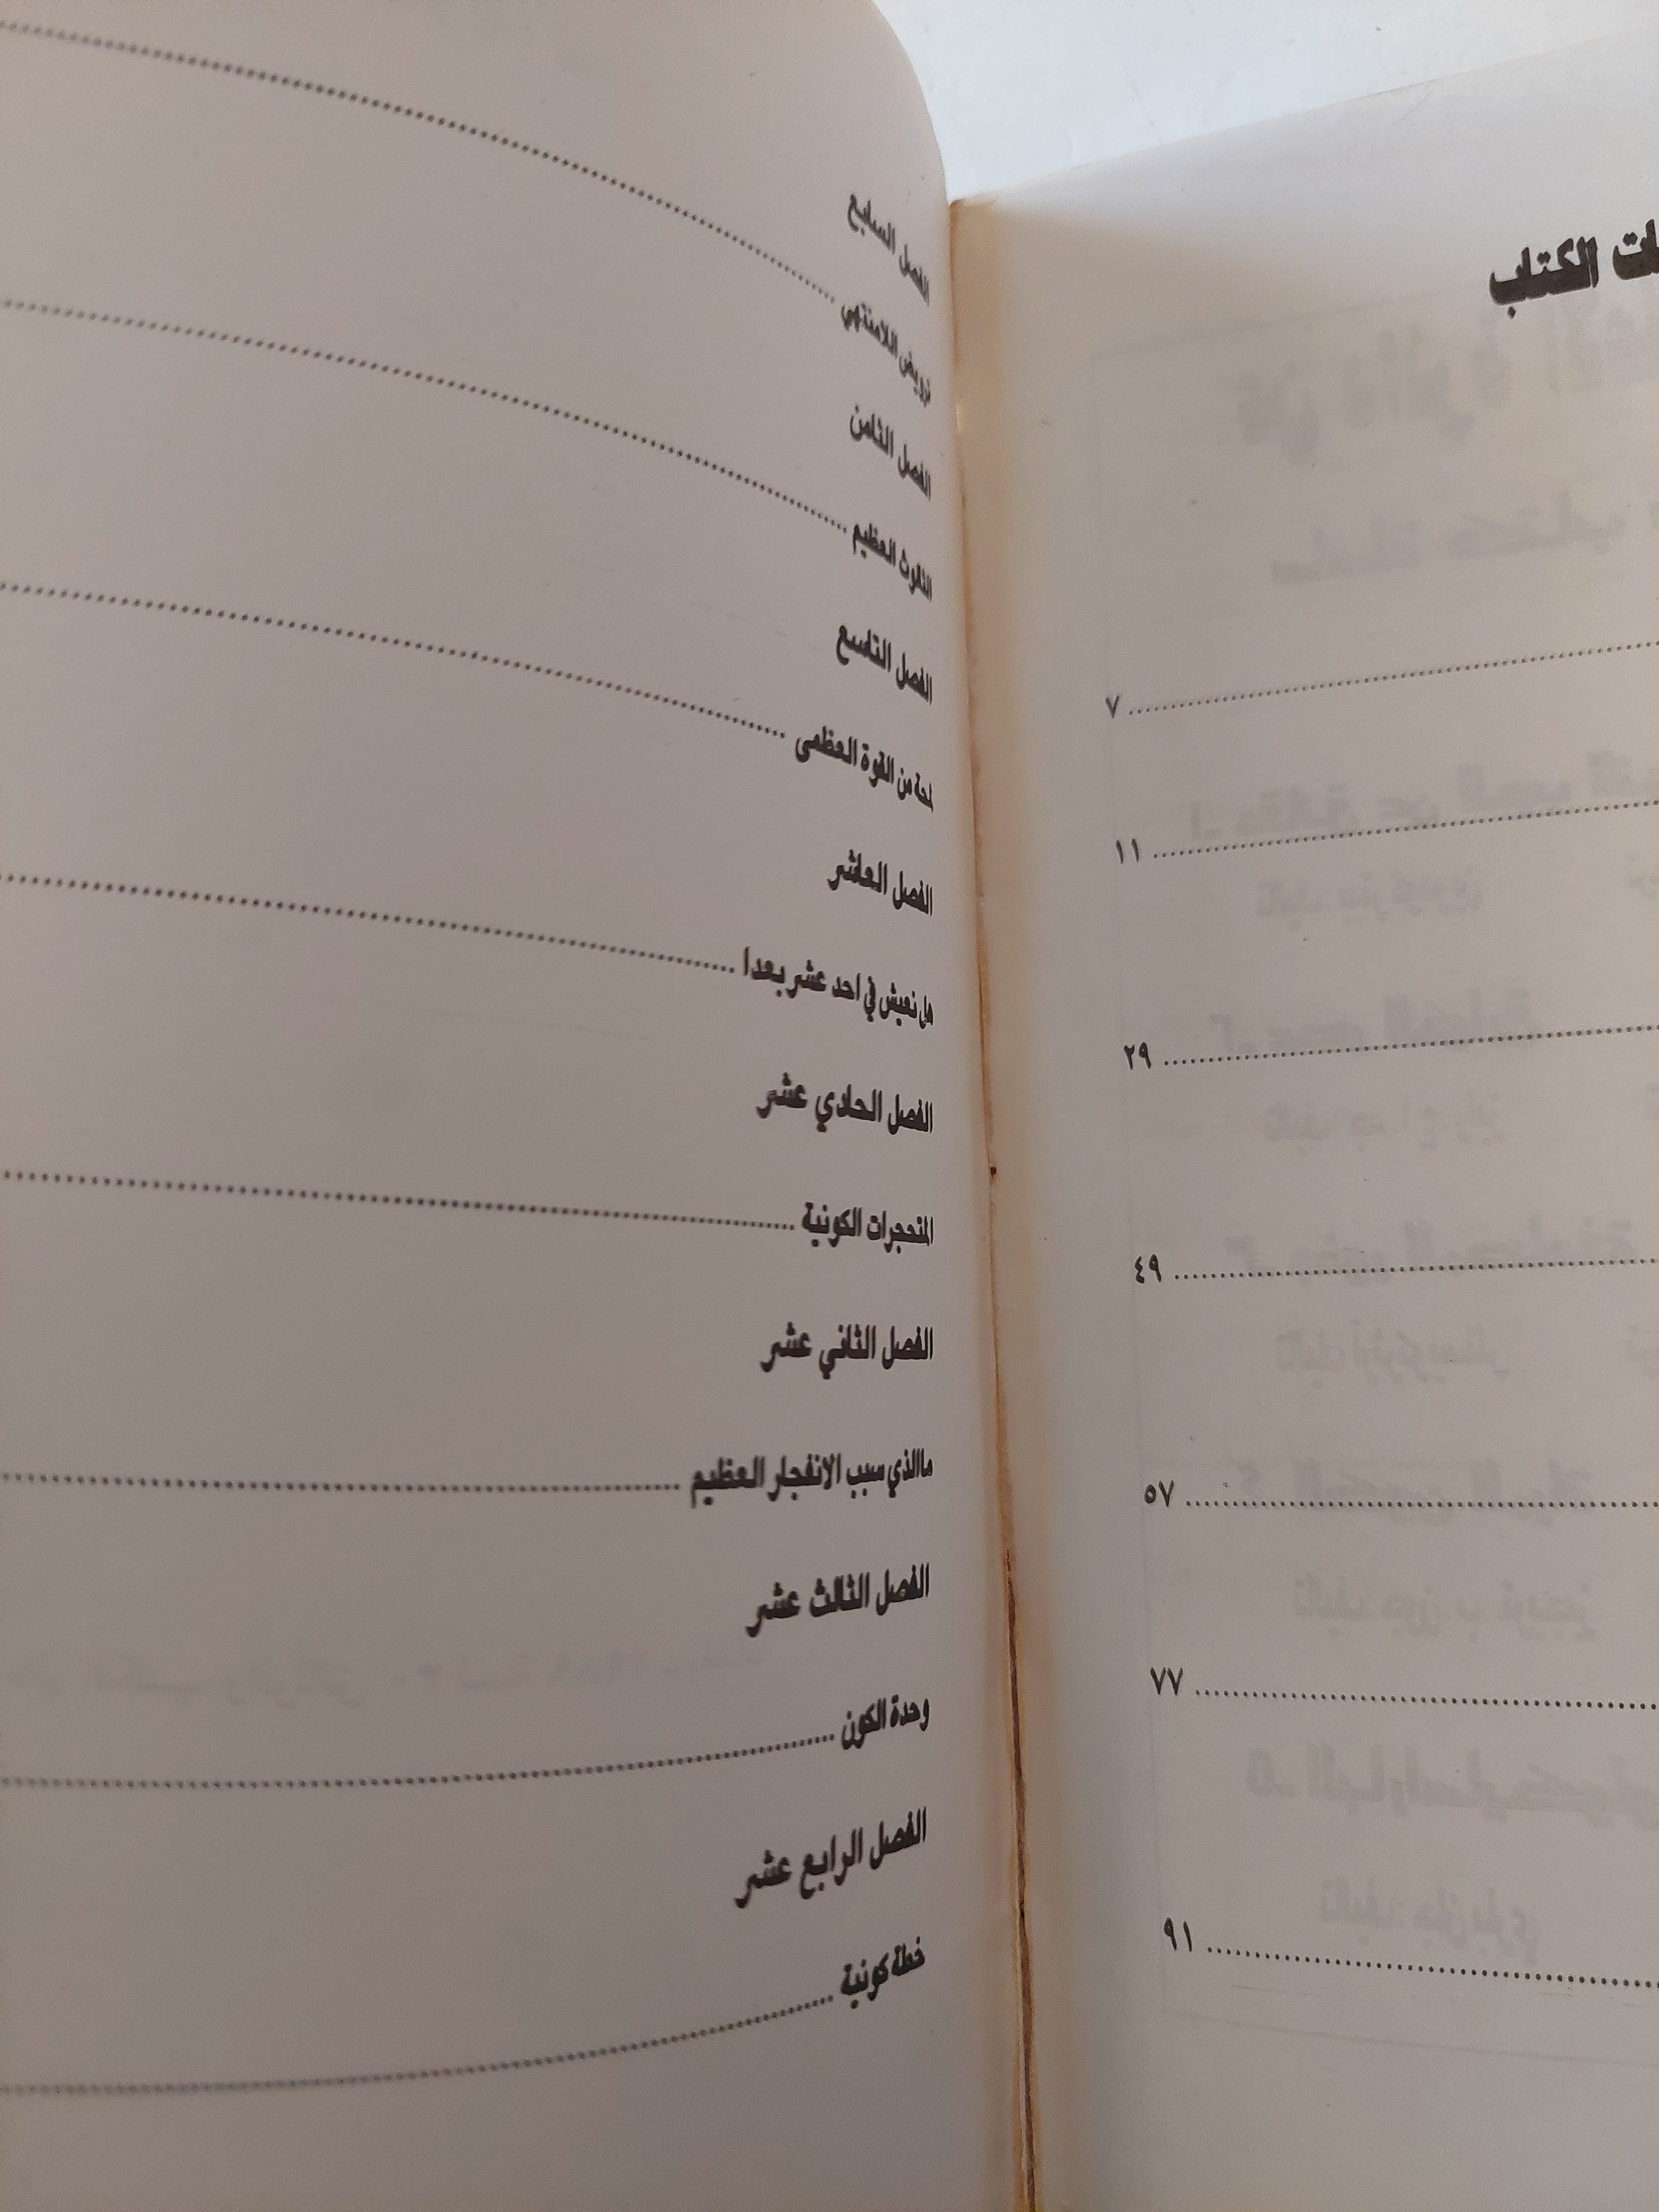 الكتاب
٧
١١
٢٩
٤٩
٥٧
٧٧
٩١
الفصل السابع
ترويض اللامنتهي
الفصل الثامن
الثالوث العظيم
الفصل التاسع
لمحة من القوة العظمى
الفصل العاشر
هل نعيش في احد عشر بعدا
الفصل الحادي عشر
المتحجرات الكونية
الفصل الثاني عشر
ماالذي سبب الانفجار العظيم
الفصل الثالث عشر
وحدة الكون
الفصل الرابع عشر
خطة كونية